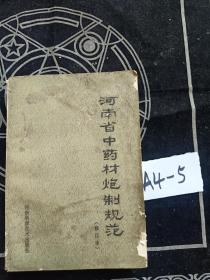 河南省中药材炮制规范
（修订本）
A4-5